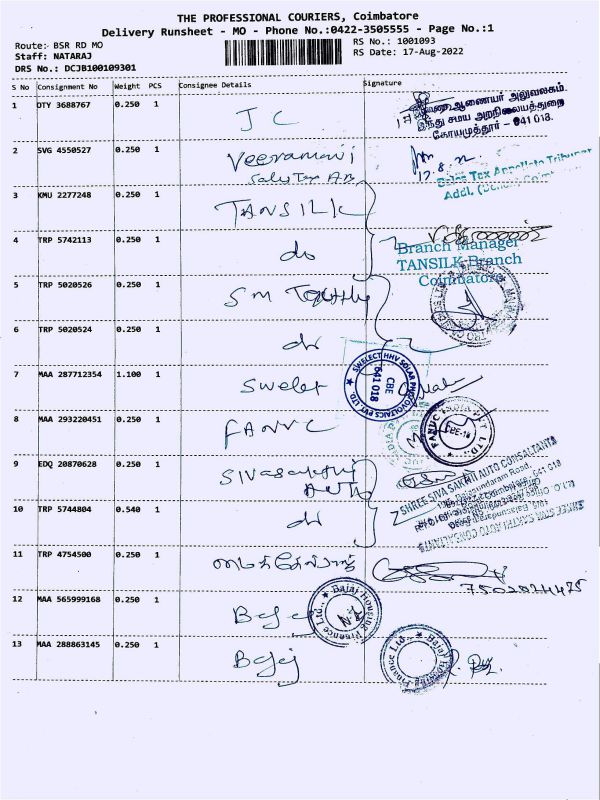 THE PROFESSIONAL COURIERS, Coimbatore
Delivery Runsheet - MO - Phone No.:0422-3505555 - Page No.:1
Route: BSR RD MO
RS No.: 1001093
Staff: NATARAJ
RS Date: 17-Aug-2022
DRS No.: DCJB100109301
S No Consignment No Weight PCS Consignee Details Signature
1 OTY 3688767 0.250 1 JC
ஆணையர் அலுவலகம்.
இந்து சமய அறநிலையத்துறை
கோயமுத்தூர் - 641 018.
2 SVG 4550527 0.250 1 Veeramani
Sales Tax AB
17.8.22
Sales Tax Appellate Tribunal
Addl.
3 KMU 2277248 0.250 1 TANSILK
4 TRP 5742113 0.250 1 do
Branch Manager
TANSILK Branch
Coimbatore
5 TRP 5020526 0.250 1 SM
6 TRP 5020524 0.250 1 do
7 MAA 287712354 1.100 1 Swelet
SWELECT HHV SOLAR PHOTOVOLTAICS PVT. LTD
CBE
641 018
8 MAA 293220451 0.250 1 FANUC
FANUC India PVT. LTD.
CBE-18
9 EDQ 20870628 0.250 1 Sivasakthi
Auto
SHREE SIVA SAKTHI AUTO CONSULTANTA
10 TRP 5744804 0.540 1 do
11 TRP 4754500 0.250 1
7502024475
12 MAA 565999168 0.250 1 Bajaj
Bajaj Housing Finance Ltd.,
13 MAA 288863145 0.250 1 Bajaj
Bajaj Housing Finance Ltd.,